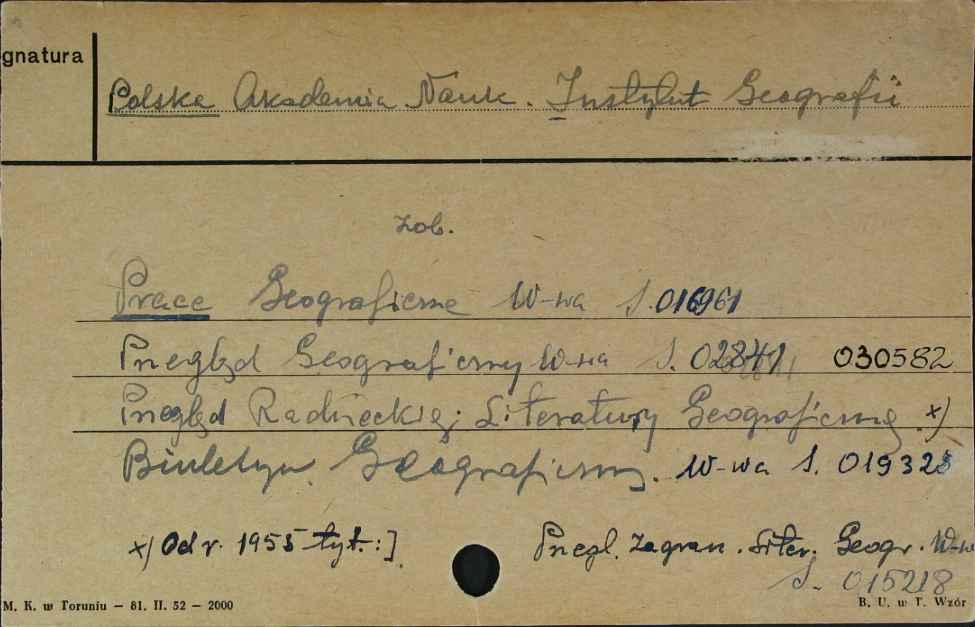 gnatura
Polska Akademia Nauk. Instytut Geografii
zob.
Prace Geograficzne W-wa S. 016961
Przegląd Geograficzny W-wa S. 02841 030582
Przegląd Radzieckiej Literatury Geograficznej x)
Biuletyn Geograficzny. W-wa S. 019323
x) Od r. 1955 tyt.:] Przegl. Zagran. Liter. Geogr. W-wa
S. 015218
M. K. w Toruniu — 81. II. 52 — 2000 B. U. w T. Wzór